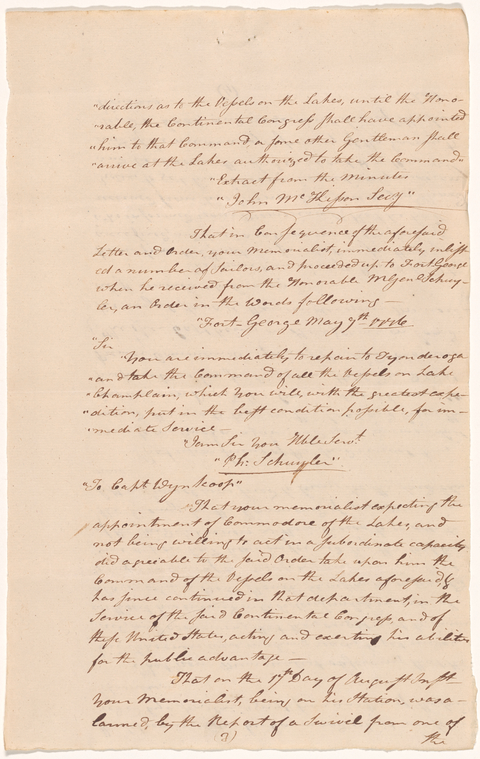 "directions as to the Vessels on the Lakes, until the Hono-
"rable, the Continental Congress shall have appointed
"him to that Command, or some other Gentleman shall
"arrive at the Lakes authorized to take the Command"
"Extract from the Minutes
"John McKesson Secy"
That in Consequence of the aforesaid
Letter and Order, your Memorialist, immediately inlist-
ed a number of Sailors, and proceeded up to Fort George
when he received from the Honorable MGenl Schuy-
ler, an Order in the Words following —
"Fort-George May 7th 1776
"Sir
"You are immediately to repair to Tyonderoga
"and take the Command of all the Vessels on Lake
"Champlain, which You will, with the greatest expe-
"dition, put in the best condition possible, for im-
"mediate Service —
"I am Sir You Hble Servt.
"Ph: Schuyler"
"To Capt Wynkoop"
That your memorialist expecting the
appointment of Commodore of the Lakes, and
not being willing to act in a Subordinate capacity
did agreable to the said Order take upon him the
Command of the Vessels on the Lakes aforesaid, &
has since continued in that department, in the
Service of the said Continental Congress, and of
these United States, acting and exerting his abilities
for the public advantage —
That on the 17th Day of August Inst
Your Memorialist, being on his Station, was a-
larmed, by the Report of a Swivel from one of
(3)
the